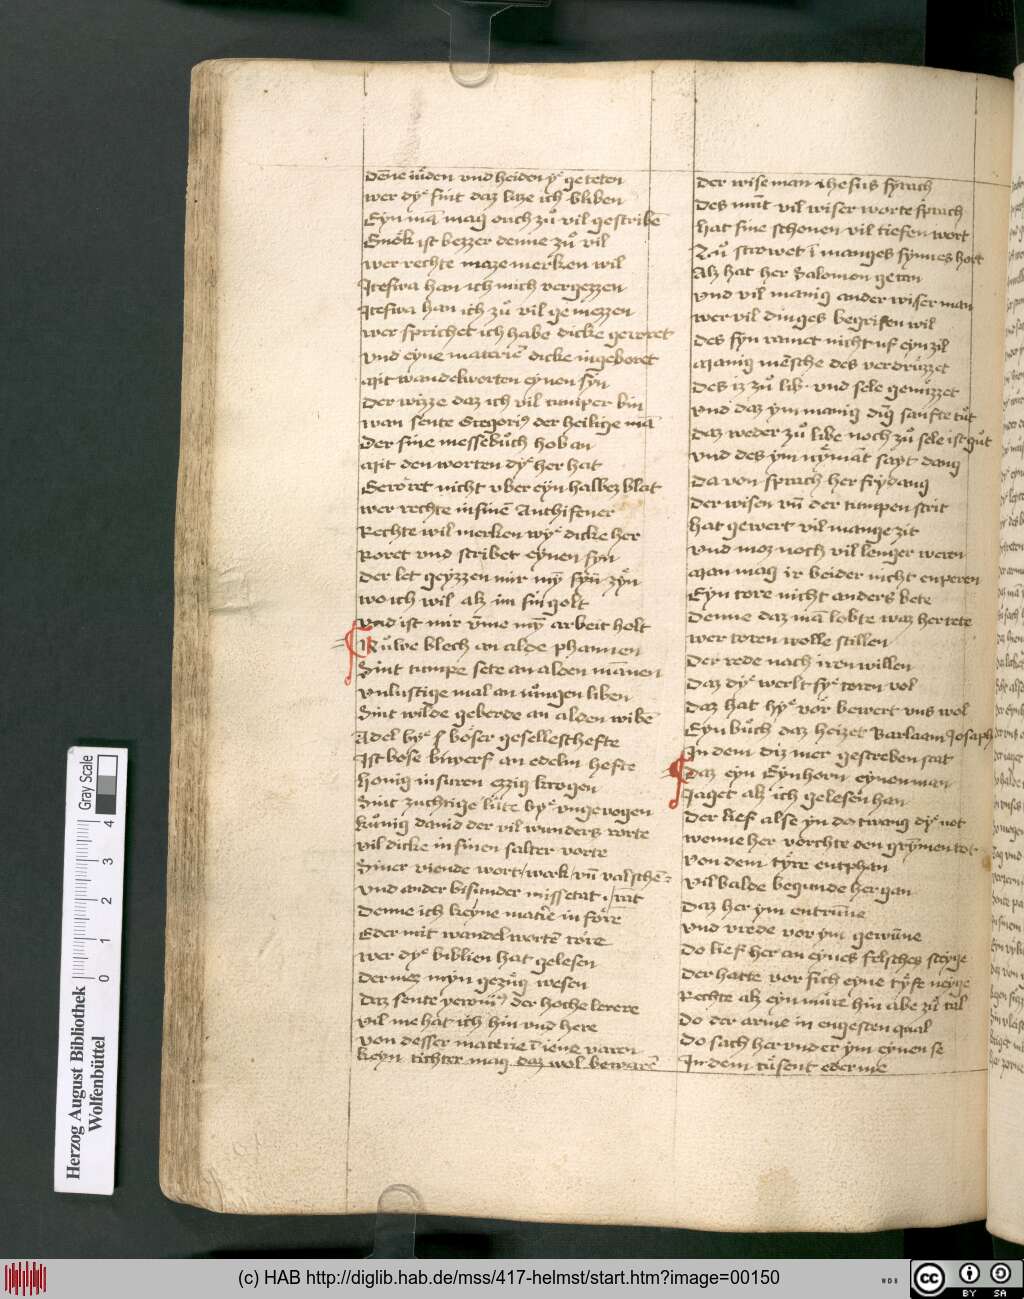 Denne iuden vnd heiden yͤ geteten
wer dyͤ sint daz laze ich bliben
Eyn mā mag ouch zuͦ vil gestribē
Snoͤk ist bezzer denne zuͦ vil
wer rechte maze merken wil
han ich mich vergezzen
han ich zuͦ vil gemezzen
wer sprichet ich habe dicke geroret
vnd eyne materiē dicke ingeboret
Mit wandelworten eynen syn
Der wizze daz ich vil tumper bin
wan sente Gregoriꝰ der heilige mā
Der sine messebuͦch hob an
Mit den worten dyͤ her hat
Geroͤret nicht vber eyn halbez blat
wer rechte in sinē Anthifener
Rechte wil merken wyͤ dicke her
Roret vnd scribet eynen syn
Der let geyzzen mir myͤ syn zyͤn
wo ich wil alz im singolt
vnd ist mir vm̄e myͤ arbeit holt
Nuͦwe blech an alde phannen
Sint tumpe sete an alden mānen
vnlustige mal an iungen liben
Sint wilde geberde an alden wibē
Adel byͤ boser geselleschefte
Ist bose biwerf an edelm hefte
honig in suren ezzig krogen
Sint zuchtige lute byͤ vngezogen
kuͦnig dauid der vil wunders rorte
vil dicke in sinen salter vorte
Siner viende wort/werk/vn̄ valschē
vnd ander bisunder missetat / rāt
Denne ich keyne matīe in foͤre
Eder mit wandel wortē roͤre
wer dyͤ biblien hat gelesen
Der mez myn gezuͦg wesen
daz sente ꝰ der hoche lerere
vil me hat ich hin vnd here
von desser materie varen
keyn tichter mag daz wol bewarē
Der wise man ihesus syrach
Des mūt vil wiser worte sprach
hat sine schonen vil tiefen wort
Zuͦ strowet ī manges synnes hort
Alz hat her Salomon getan
vnd vil manig ander wiser man
wer vil dinges begrifen wil
des syn ramet nicht uf eyn zil
Manig mēsche des verdruͦzzet
Des iz zuͦ lib vnd sele genuͦzzet
vnd daz ym manig dīg sanfte tuͦt
daz weder zuͦ libe noch zuͦ sele ist guͦt
vnd des ym nyͤmāt sayt dang
Da von sprach her frydang
Der wisen vn̄ der tumpen strit
hat gewert vil mange zit
vnd moz noch vil lenger weren
Man mag ir beider nicht enperen
Eyn tore nicht anders bete
Denne daz mā lobte waz her tete
wer toren wolle stillen
Der rede nach iren willen
Daz dyͤ werlt syͤ toren vol
daz hat hyͤ vor bewert vns wol
Eyn buͦch daz heizet Barlaam Josaph
In dem diz mer gescreben stat
daz eyn Eynhorn eynen man
Jaget alz ich gelesen han
Der lief alse yn do twang dyͤ not
wenne her vorchte den grymen tot
von dem tyͤre entphan
vil balde begunde her gan
Daz her ym entrūne
vnd vrede vor ym gewūne
do lief her an eynes felsches steyge
der hatte vor sich eyne tyͤfe neyge
Rechte alz eyn mure hin abe zuͦ tal
do der arme in engesten qual
do sach her vnder ym eynen se
In dem tuͦsent eder me
Herzog August Bibliothek
Wolfenbüttel
Gray Scale
0 1 2 3 4
(c) HAB http://diglib.hab.de/mss/417-helmst/start.htm?image=00150
WDB
cc BY SA